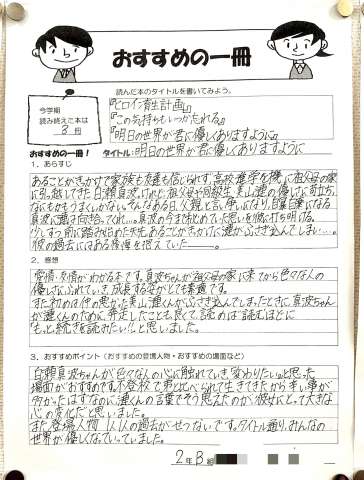 おすすめの一冊
今学期
読み終えた本は
3冊
読んだ本のタイトルを書いてみよう。
『ヒロイン育生計画』
『この気持ちもいつか忘れる』
『明日の世界が君に優しくありますように』
おすすめの一冊！
タイトル:明日の世界が君に優しくありますように
1．あらすじ
あることがきっかけで家族も友達も信じられず、高校進学を機に祖父母の家
に引越してきた白瀬真波。けれど、祖父母や同級生・美山漣の優しさに苛立ち、
なにもかもうまくいかない。そんなある日、父親と言い争いになり、自暴自棄になる
真波に漣は向き合ってくれ…。真波のうまれはじめていた思いを彼に打ち明ける。
少しずつ前に踏み出した矢先、あることがきっかけに漣がふさぎ込んでしまい…。
彼の過去にはある後悔を抱えていた――。
2．感想
愛情・友情がわかる本です。真波ちゃんが祖父母の家に来てから色々な人の
優しさにふれていき、成長する姿がとても素適です。
また初めは他の思った美山漣くんがふさぎ込んでしまったときに、真波ちゃ
んが漣くんのために奔走したことも良くて、読めば読むほどに
"もっと続きを読みたい！"と思いました。
3．おすすめポイント（おすすめの登場人物・おすすめの場面など）
白瀬真波ちゃんが、色々な人の心に触れていき、"変わりたい"と思った
場面がおすすめです。不登校で弟と比べられて生きてきたから辛い事が
多かったはずなのに漣くんの言葉でそう思えたのが彼女にとって大きな
心の変化だと思いました。
また、登場人物1人1人の過去がせつないです。タイトル通り、みんなの
世界が優しくなっていっていました。
2年B組